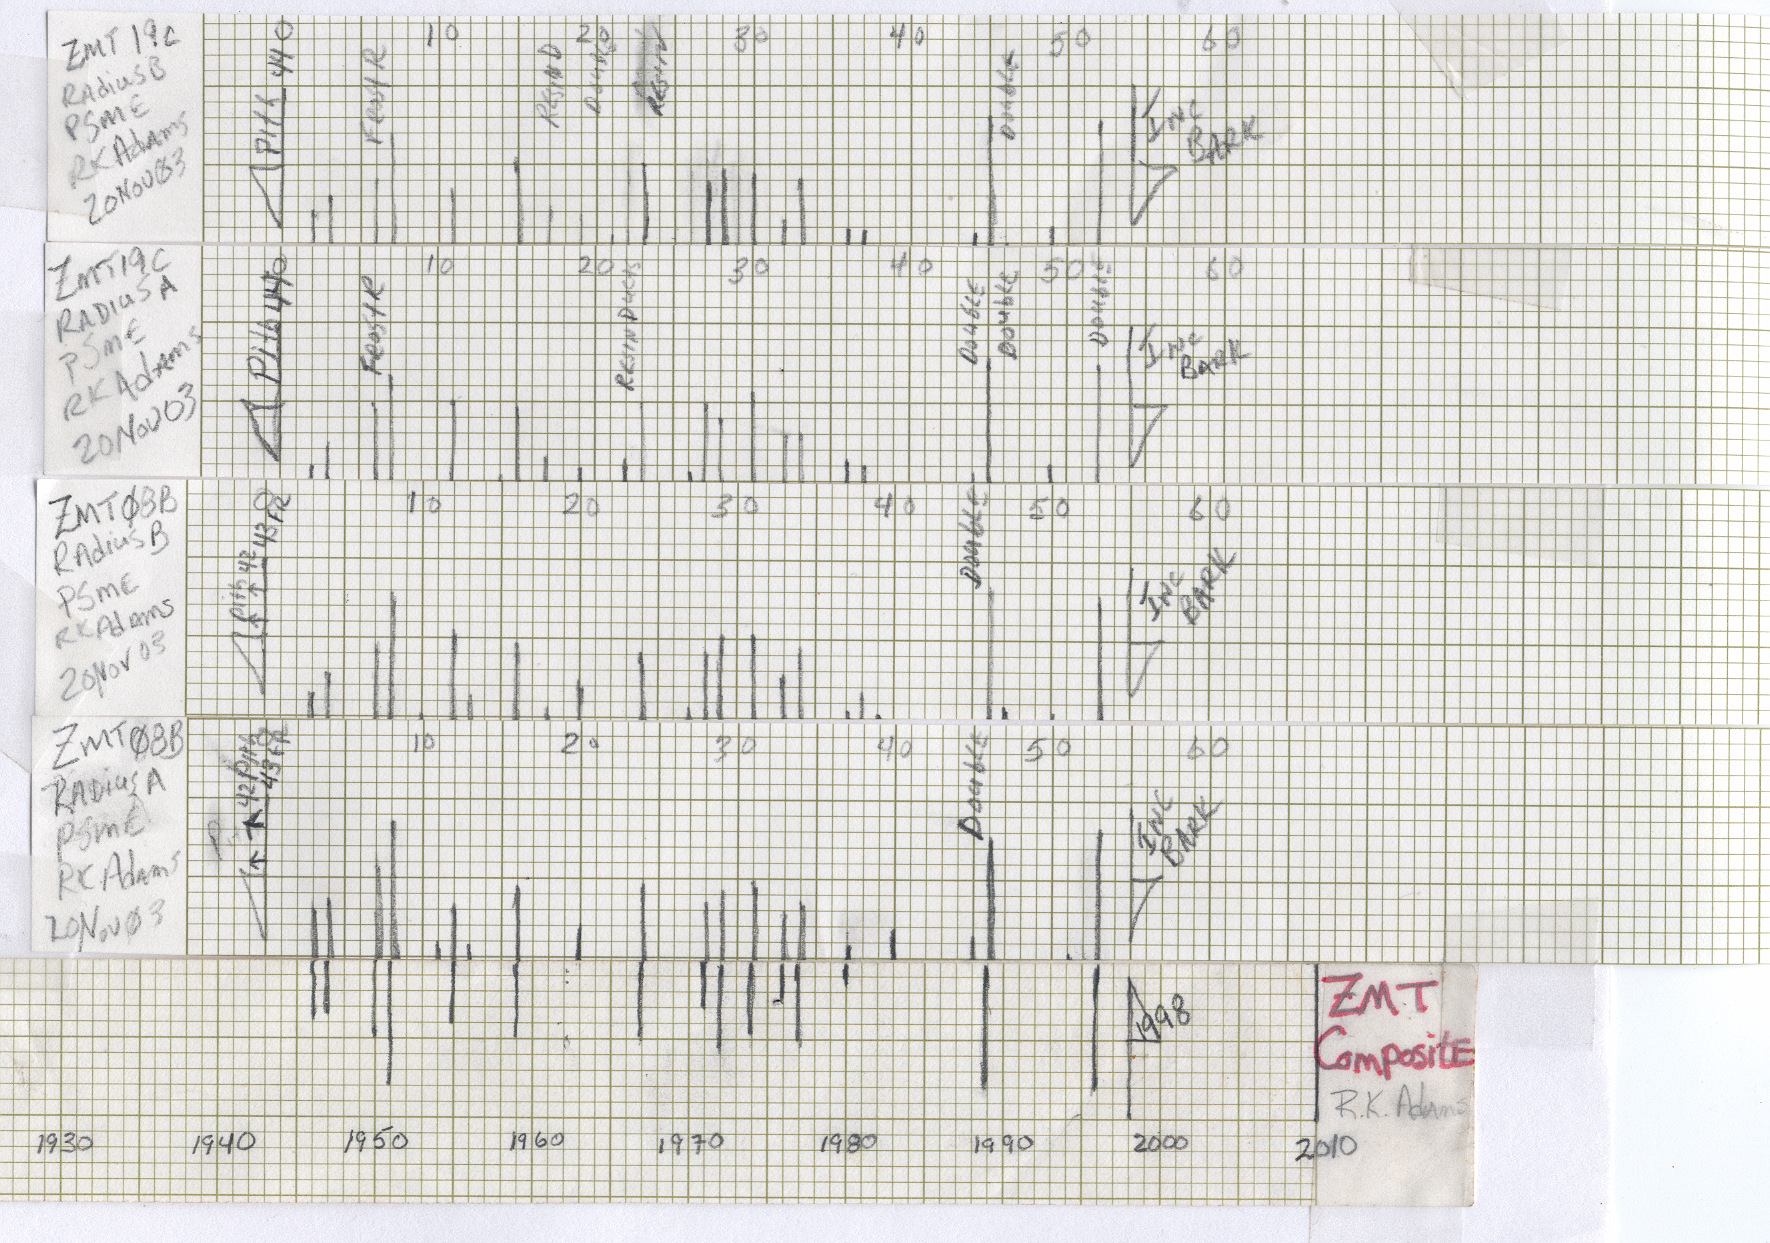 ZMT 19C
RadiusB
PSME
RKAdams
20Nov03
PITH 44 0
10
20
30
40
50
60
Frost R
RESIN D
Double
RESIN
Double
INC
BARK
ZMT19C
RADIUSA
PSME
RKAdams
20Nov03
PITH 44 0
10
20
30
40
50
60
Frost R
RESIN Ducts
Double
Double
Double
INC
BARK
ZMTØ8B
RAdiusB
PSME
RKAdams
20Nov03
pith 42 43 FR
0
10
20
30
40
50
60
Double
INC
BARK
ZMTØ8B
RADiusA
PSME
RK.Adams
20NovØ3
42 Pith
43 FR
0
10
20
30
40
50
60
Double
INC
BARK
1998
ZMT
Composite
R.K. Adams
1930 1940 1950 1960 1970 1980 1990 2000 2010